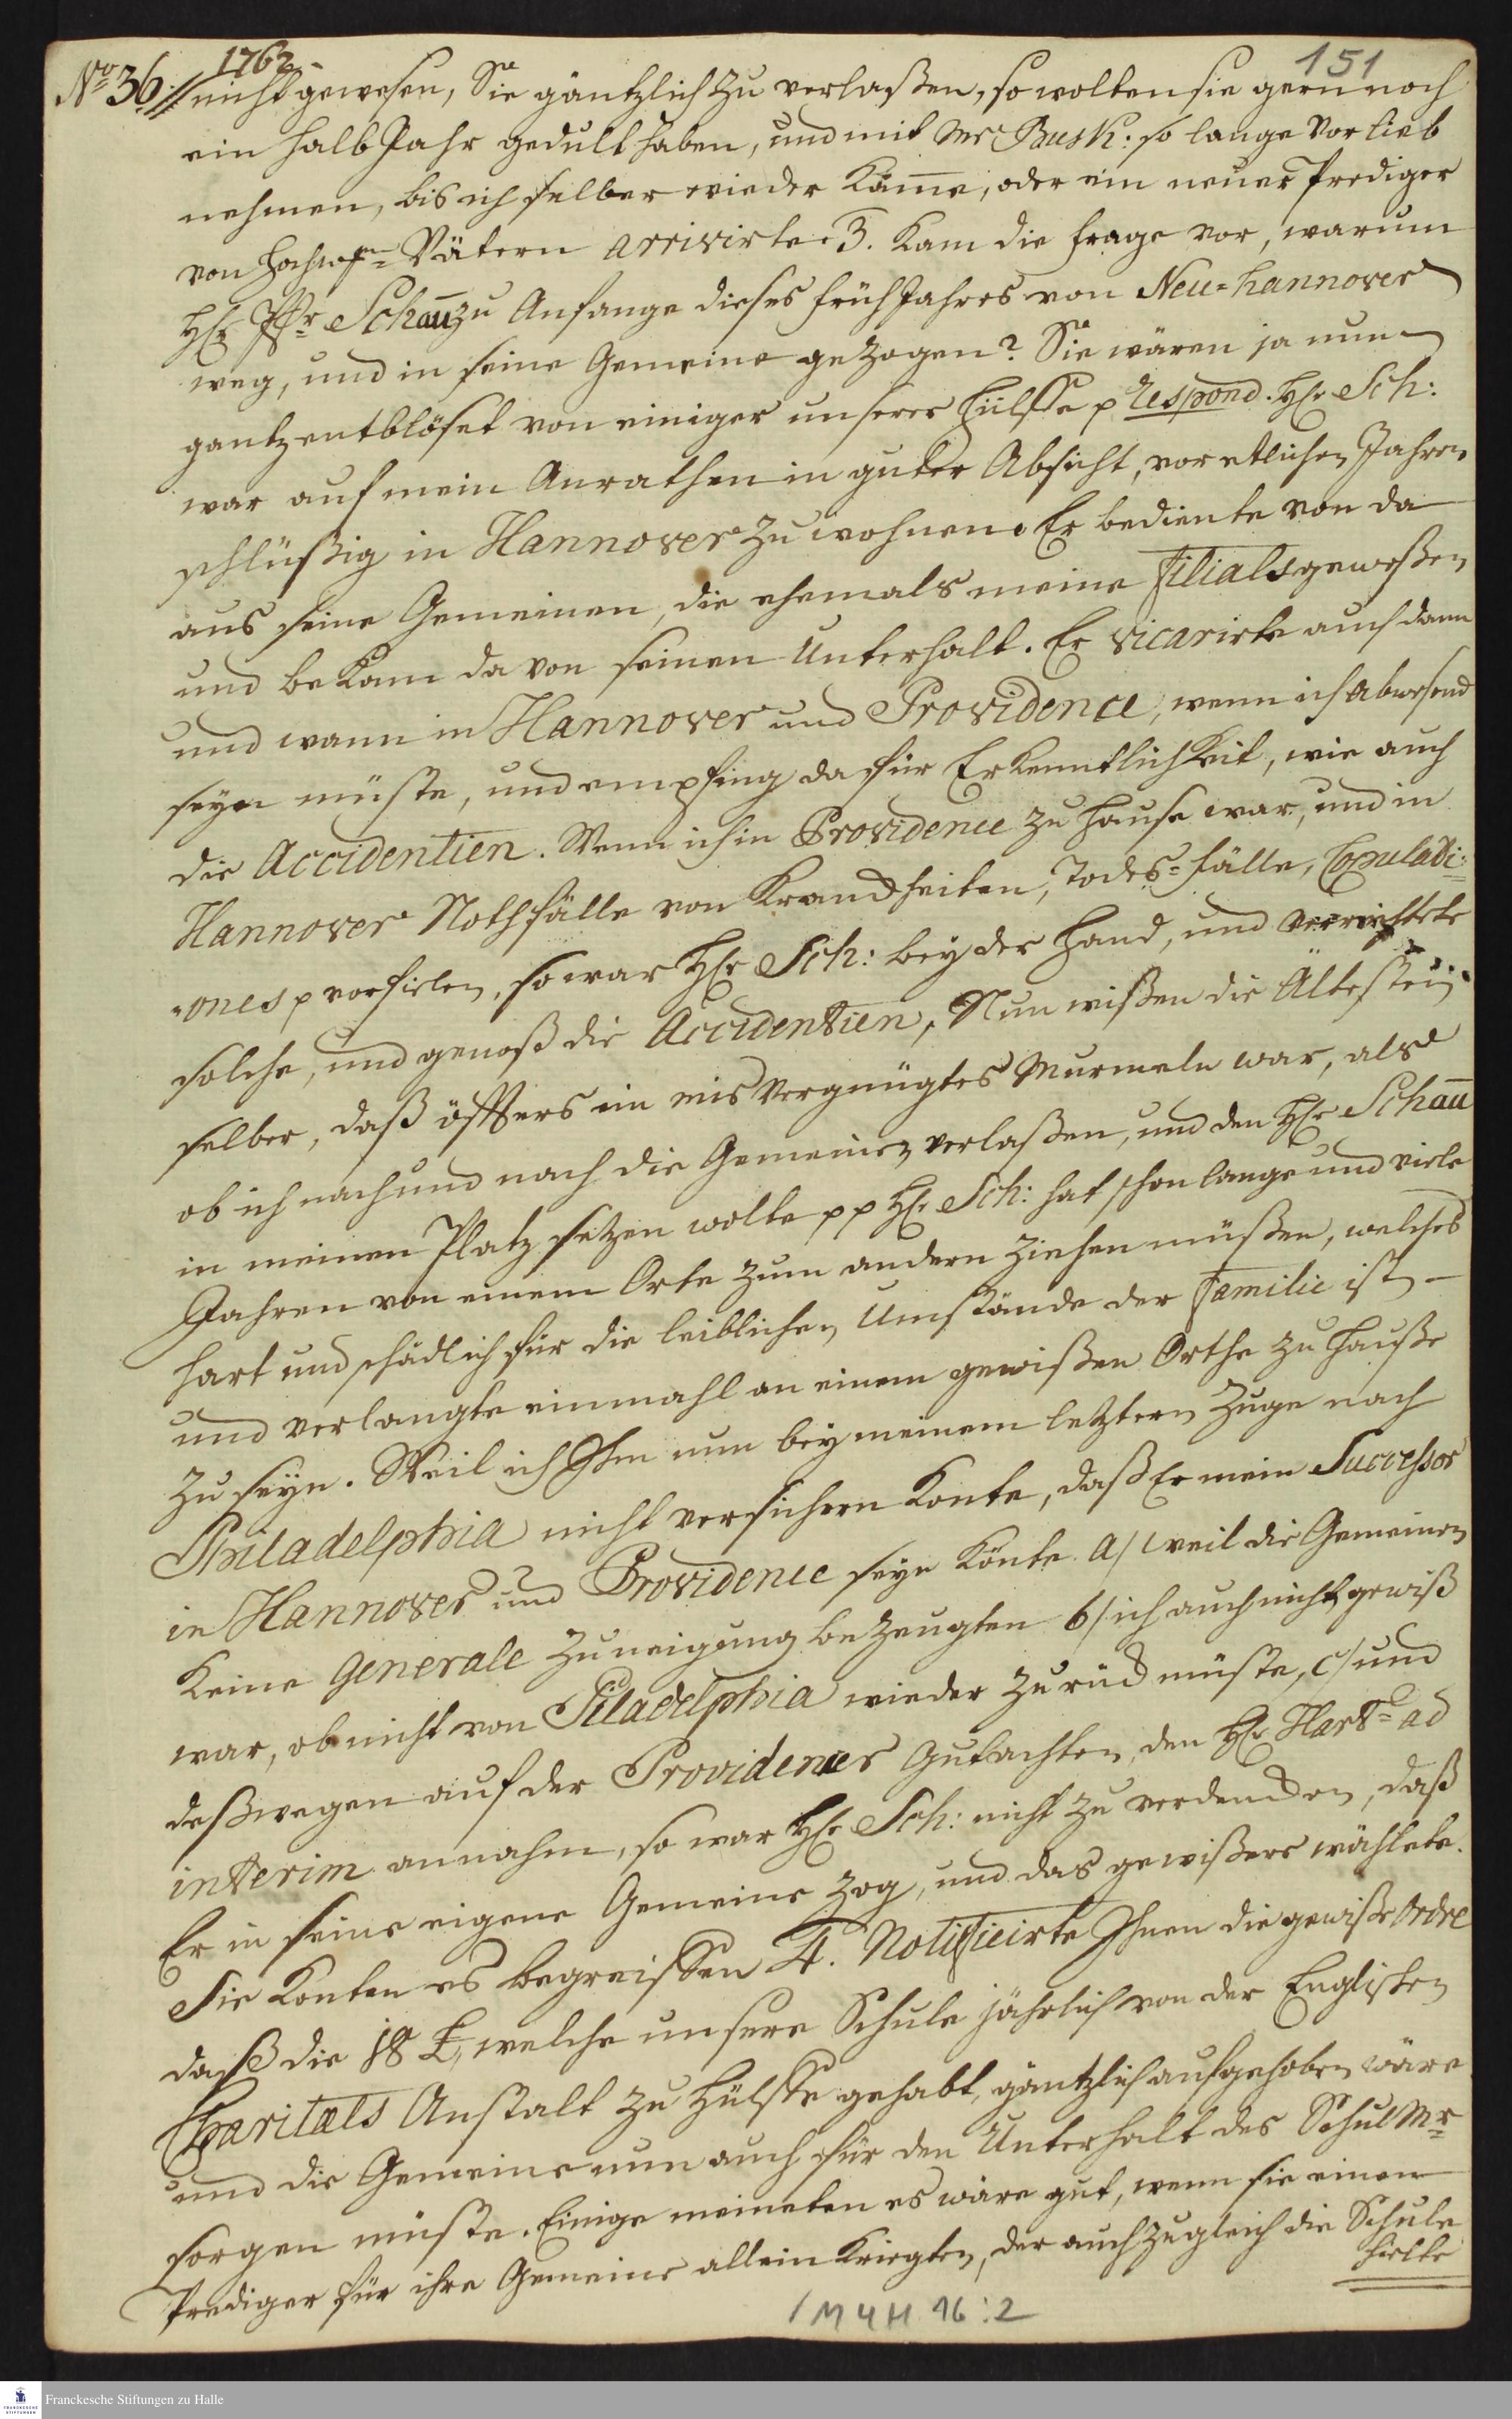 No 36. 1762. 151
nicht gewesen, Sie gäntzlich zu verlaßen, so wolten sie gern noch
ein halb Jahr gedult haben, und mit Mr Busk: so lange vor lieb
nehmen, bis ich selber wieder käme, oder ein neuer Prediger
von Hochw. Vätern arrivirte. 3. Kam die frage vor, warum
Hr Pfr Schau zu Anfange dieses früh Jahres von Neu-hannover
weg, und in seine Gemeine gezogen? Sie wären ja nun
gantz entblöset von einiger unserer Hülffe p Respond. Hr Sch:
war auf mein Anrathen in guter Absicht, vor etlichen Jahren
schlüßig in Hannover zu wohnen. Er bediente von da
aus seine Gemeinen, die ehemals meine filials geweßen
und bekam da von seinen Unterhalt. Er vicarirte auch dann
und wann in Hannover und Providence, wenn ich abwesend
seyn müste, und empfing dafür Erkenntlichkeit, wie auch
die Accidentien. Wenn ich in Providence zu Hause war, und in
Hannover Nothfälle von Kranckheiten, Todes-fälle, Copulati-
-ones p vorfielen, so war Hr Sch: bey der Hand, und verrichtete
solche, und genoß die Accidentien, Nun wißen die Ältesten
selber, daß öffters ein misvergnügtes Murmeln war, als
ob ich nach und nach die Gemeinen verlaßen, und den Hr Schau
in meinen Platz setzen wolte pp Hr Sch: hat schon lange und viele
Jahren von einem Orte zum andern ziehen müßen, welches
hart und schädlich für die leiblichen Umstände der familie ist
und verlangte einmahl an einem gewißen Orthe zu Hauße
zu seyn. Weil ich Ihm nun bey meinem letztern Zuge nach
Philadelphia nicht versichern konte, daß Er mein Successor
in Hannover und Providence seyn könte a/ weil die Gemeinen
keine Generale Zuneigung bezeugten b/ ich auch nicht gewiß
war, ob nicht von Piladelphia wieder zurück müste, c/ und
deßwegen auf der Providences Gutachten, den Hr Hart= ad
interim annahm, so war Hr Sch: nicht zu verdencken, daß
Er in seine eigene Gemeine zog, und das gewißere wählete.
Sie konten es begreiffen 4. Notificirte Ihnen die gewiße Ordre
daß die 18 £, welche unsere Schule jährlich von der Englischen
Charitæts Anstalt zu Hülffe gehabt, gäntzlich aufgehoben wäre
und die Gemeine nun auch für den Unterhalt des Schul Mr
sorgen müste. Einige meineten es wäre gut, wenn sie einen
Prediger für ihre Gemeine allein kriegten, der auch zugleich die Schule
hielte
1 M 4 H 16 : 2
Franckesche Stiftungen zu Halle